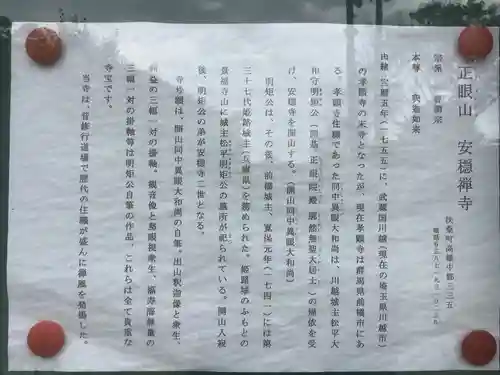 正眼山　安穏禅寺
扶桑町高雄中郷三三五
宗派　曹洞宗
本尊　釈迦如来
由緒　宝暦五年（一七五五）に、武蔵国川越（現在の埼玉県川越市）
の孝顕寺の末寺となったが、現在孝顕寺は群馬県前橋市にあ
る。孝顕寺住職であった同中異眼大和尚は、川越城主松平大
和守明矩公（開基 正眼院殿 廓然無聖大居士）の帰依を受
け、安穏寺を開山する。（開山同中異眼大和尚）
明矩公は、その後、前橋城主、寛保元年（一七四一）には第
三十七代姫路城主（兵庫県）を務められた。姫路城のふもとの
景福寺山に城主松平明矩公の墓所が祀られている。開山入寂
後、明矩公の弟が安穏寺二世となる。
寺号額は、開山同中異眼大和尚の自筆。出山釈迦像と衆生、
の三幅一対の掛軸。観音像と慈眼視衆生、福寿海無量の
三幅一対の掛軸等は明矩公自筆の作品、これらは全て貴重な
寺宝です。
当寺は、昔修行道場で歴代の住職が盛んに禅風を発揚した。